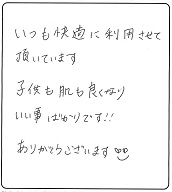 いつも快適に利用させて
頂いています
子供も肌も良くなり
いい事ばかりです!!
ありがとうございます